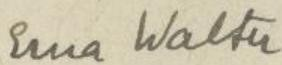 Erna Walter